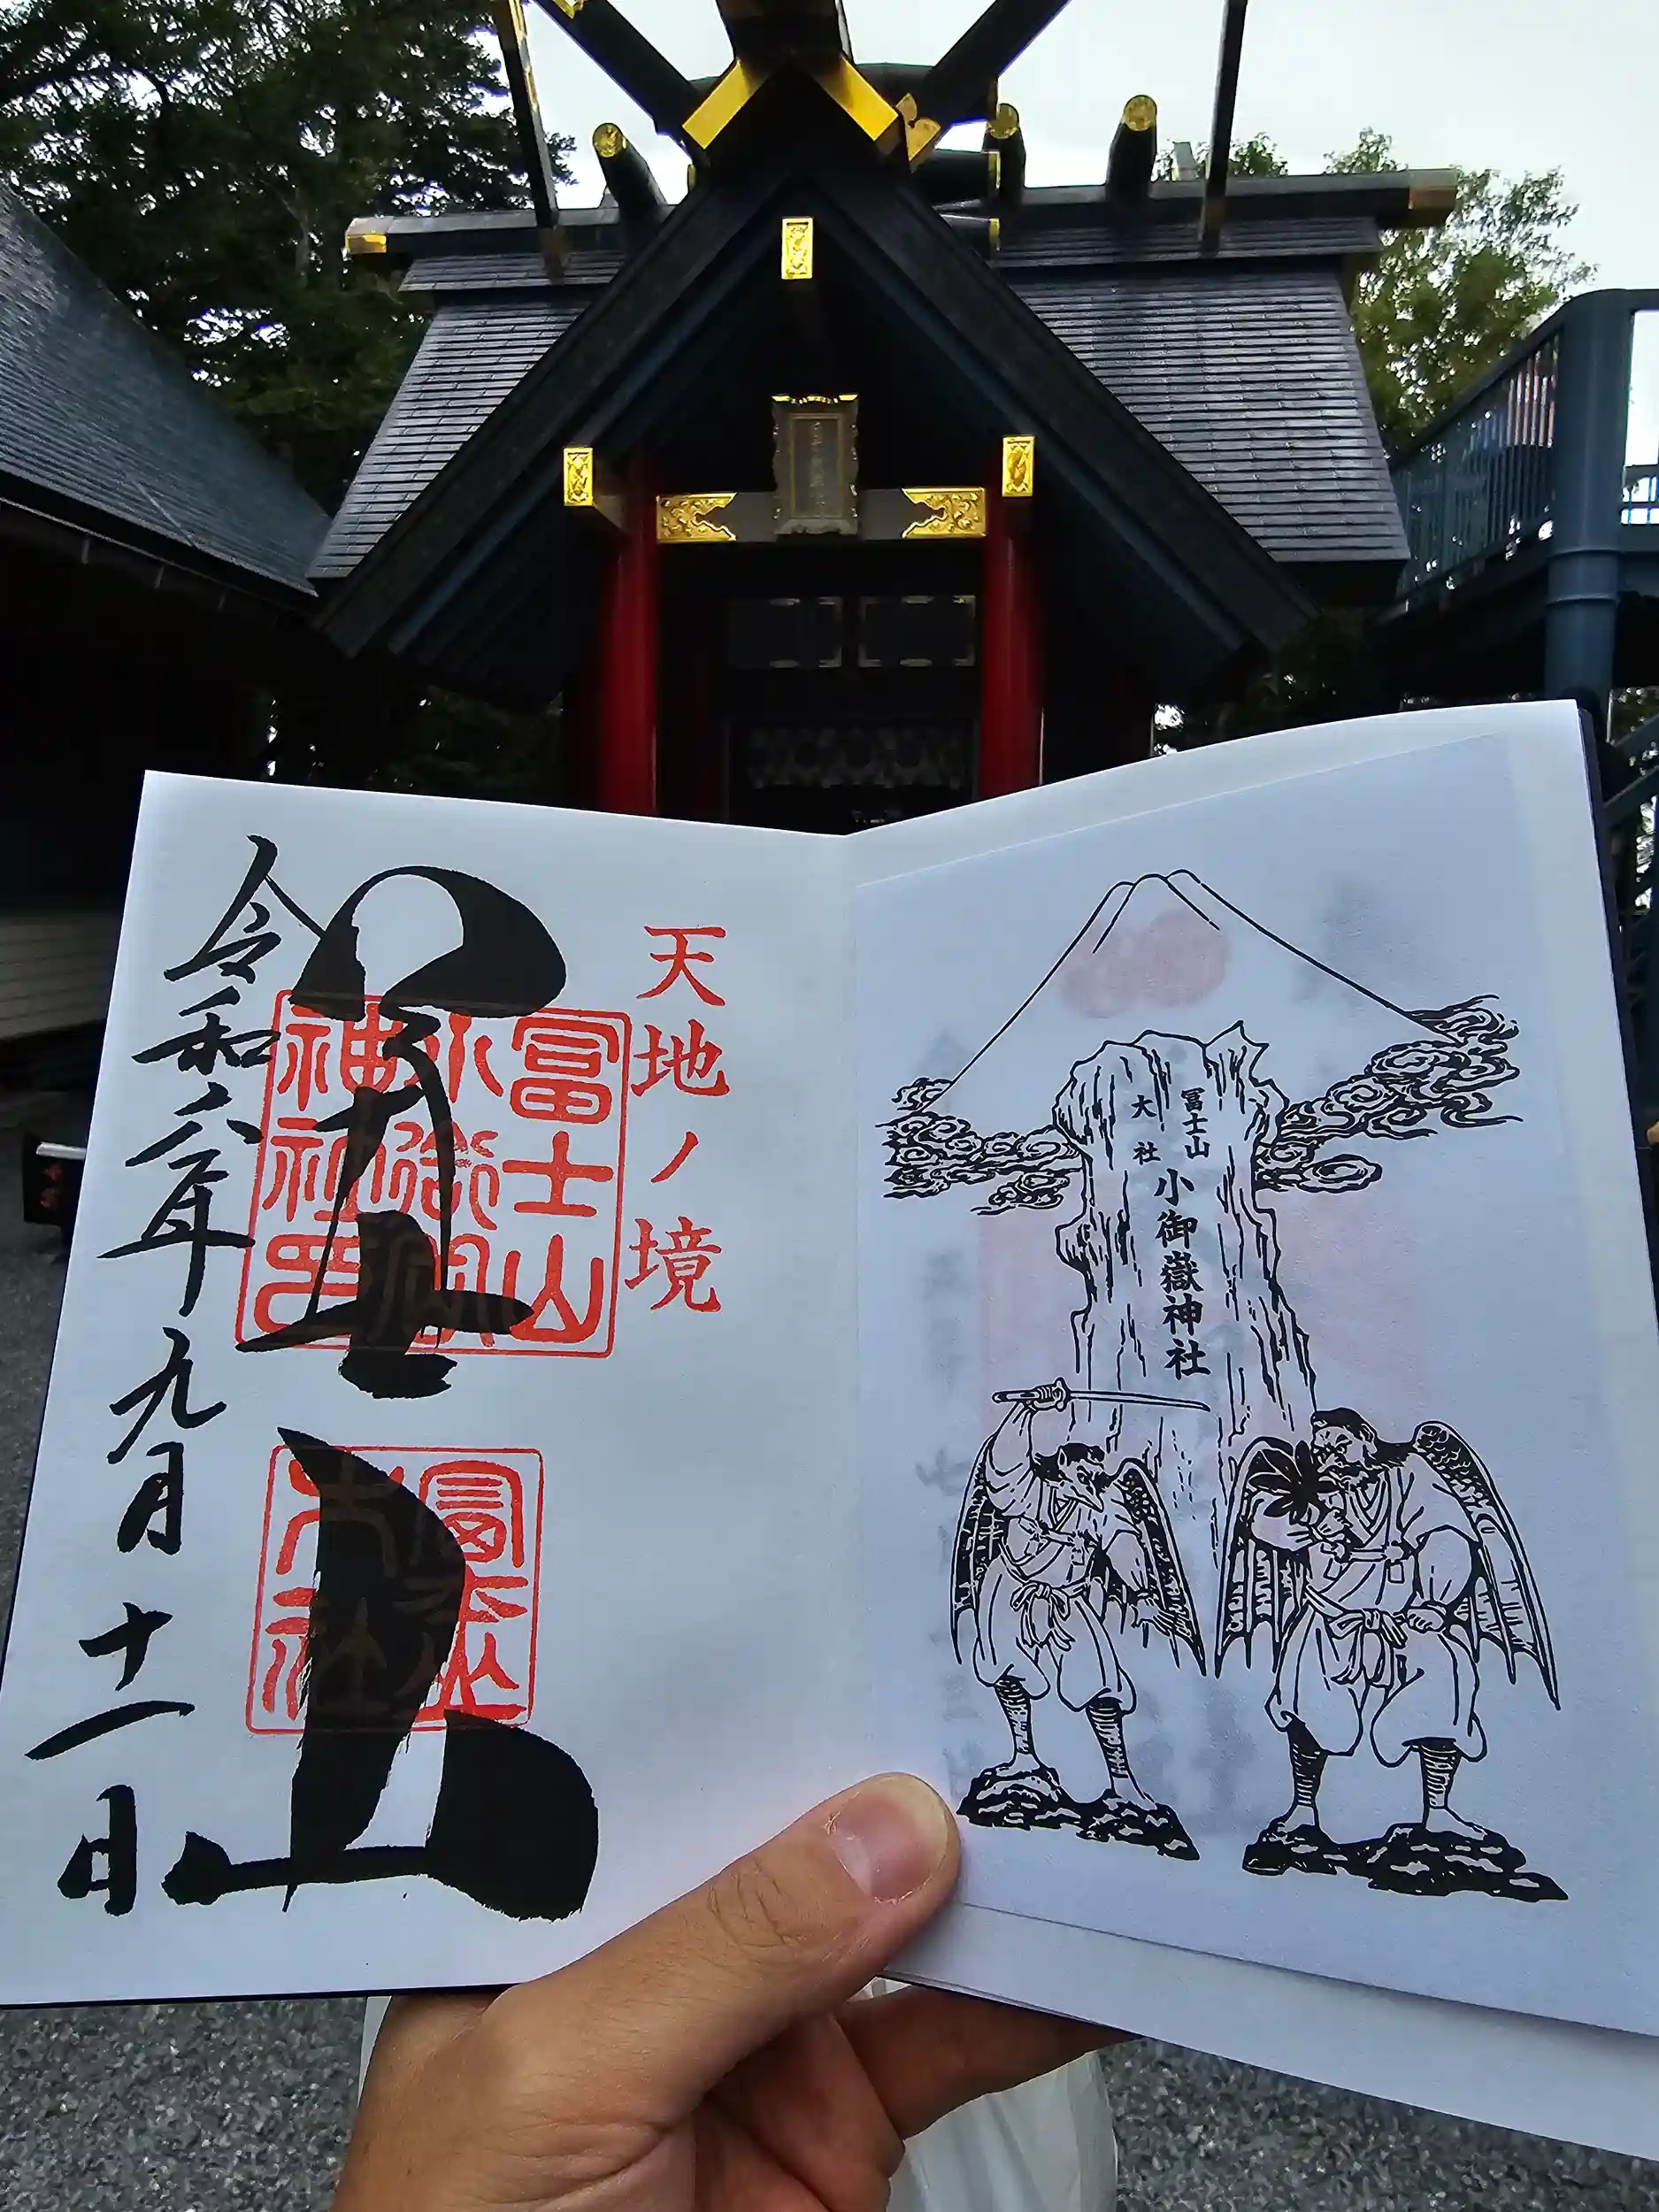 冨士山
大社
小御嶽神社
天地ノ境
冨士山
冨士山
小御嶽
神社印
冨士山
大社
令和六年九月十一日